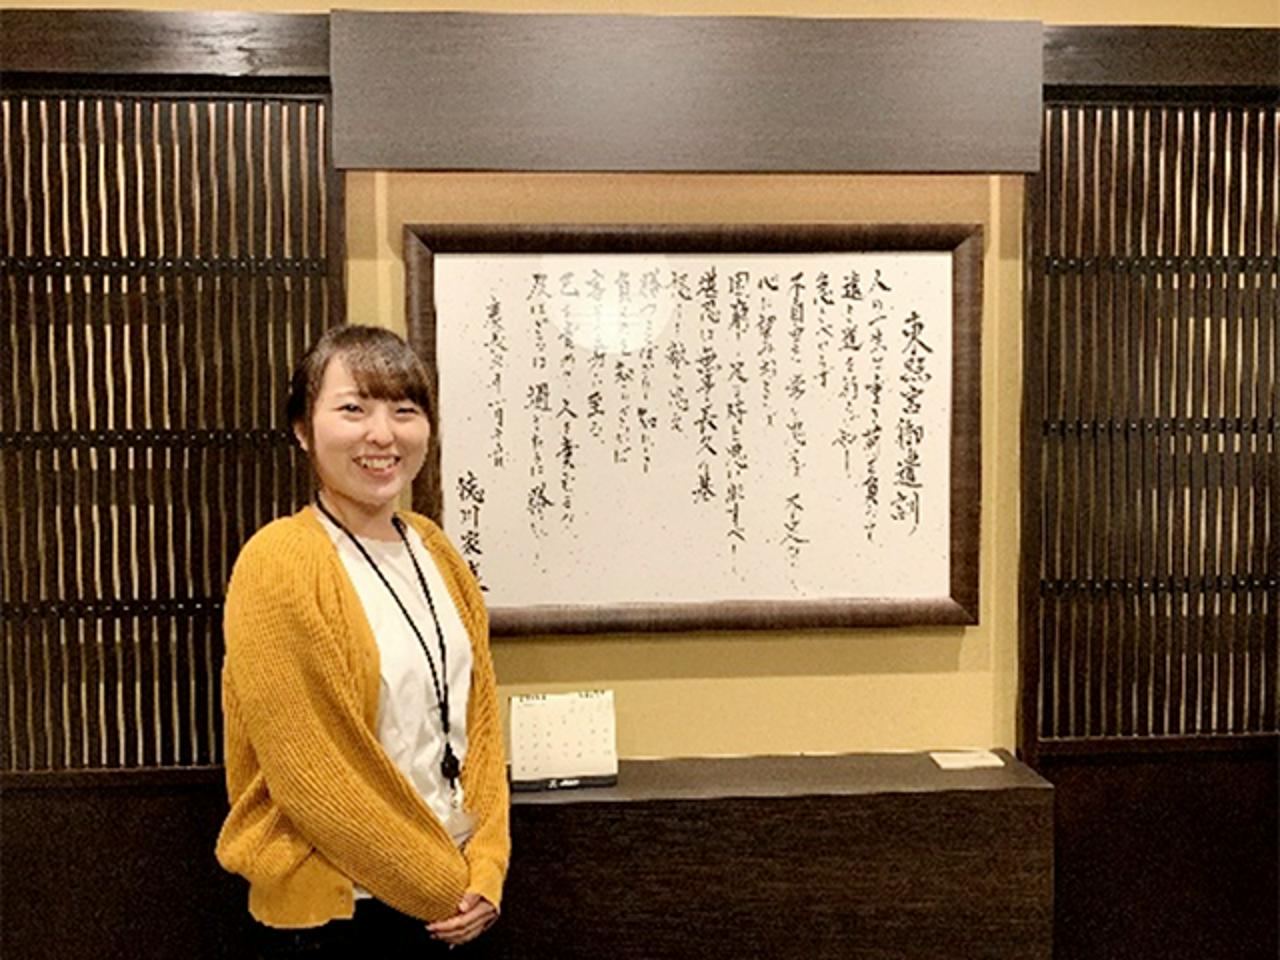 東照宮御遺訓
人の一生は重き荷を負ふて
遠き道を行くが如し
急ぐべからず
不自由を常と思へば不足なし
心に望みおこらば
困窮したる時を思ひ出すべし
堪忍は無事長久の基
怒りは敵と思へ
勝つことばかり知りて
負くるを知らざれば
害其の身に至る
己を責めて人を責むるな
及ばざるは過ぎたるに勝れり
慶長八年一月十五日
徳川家康